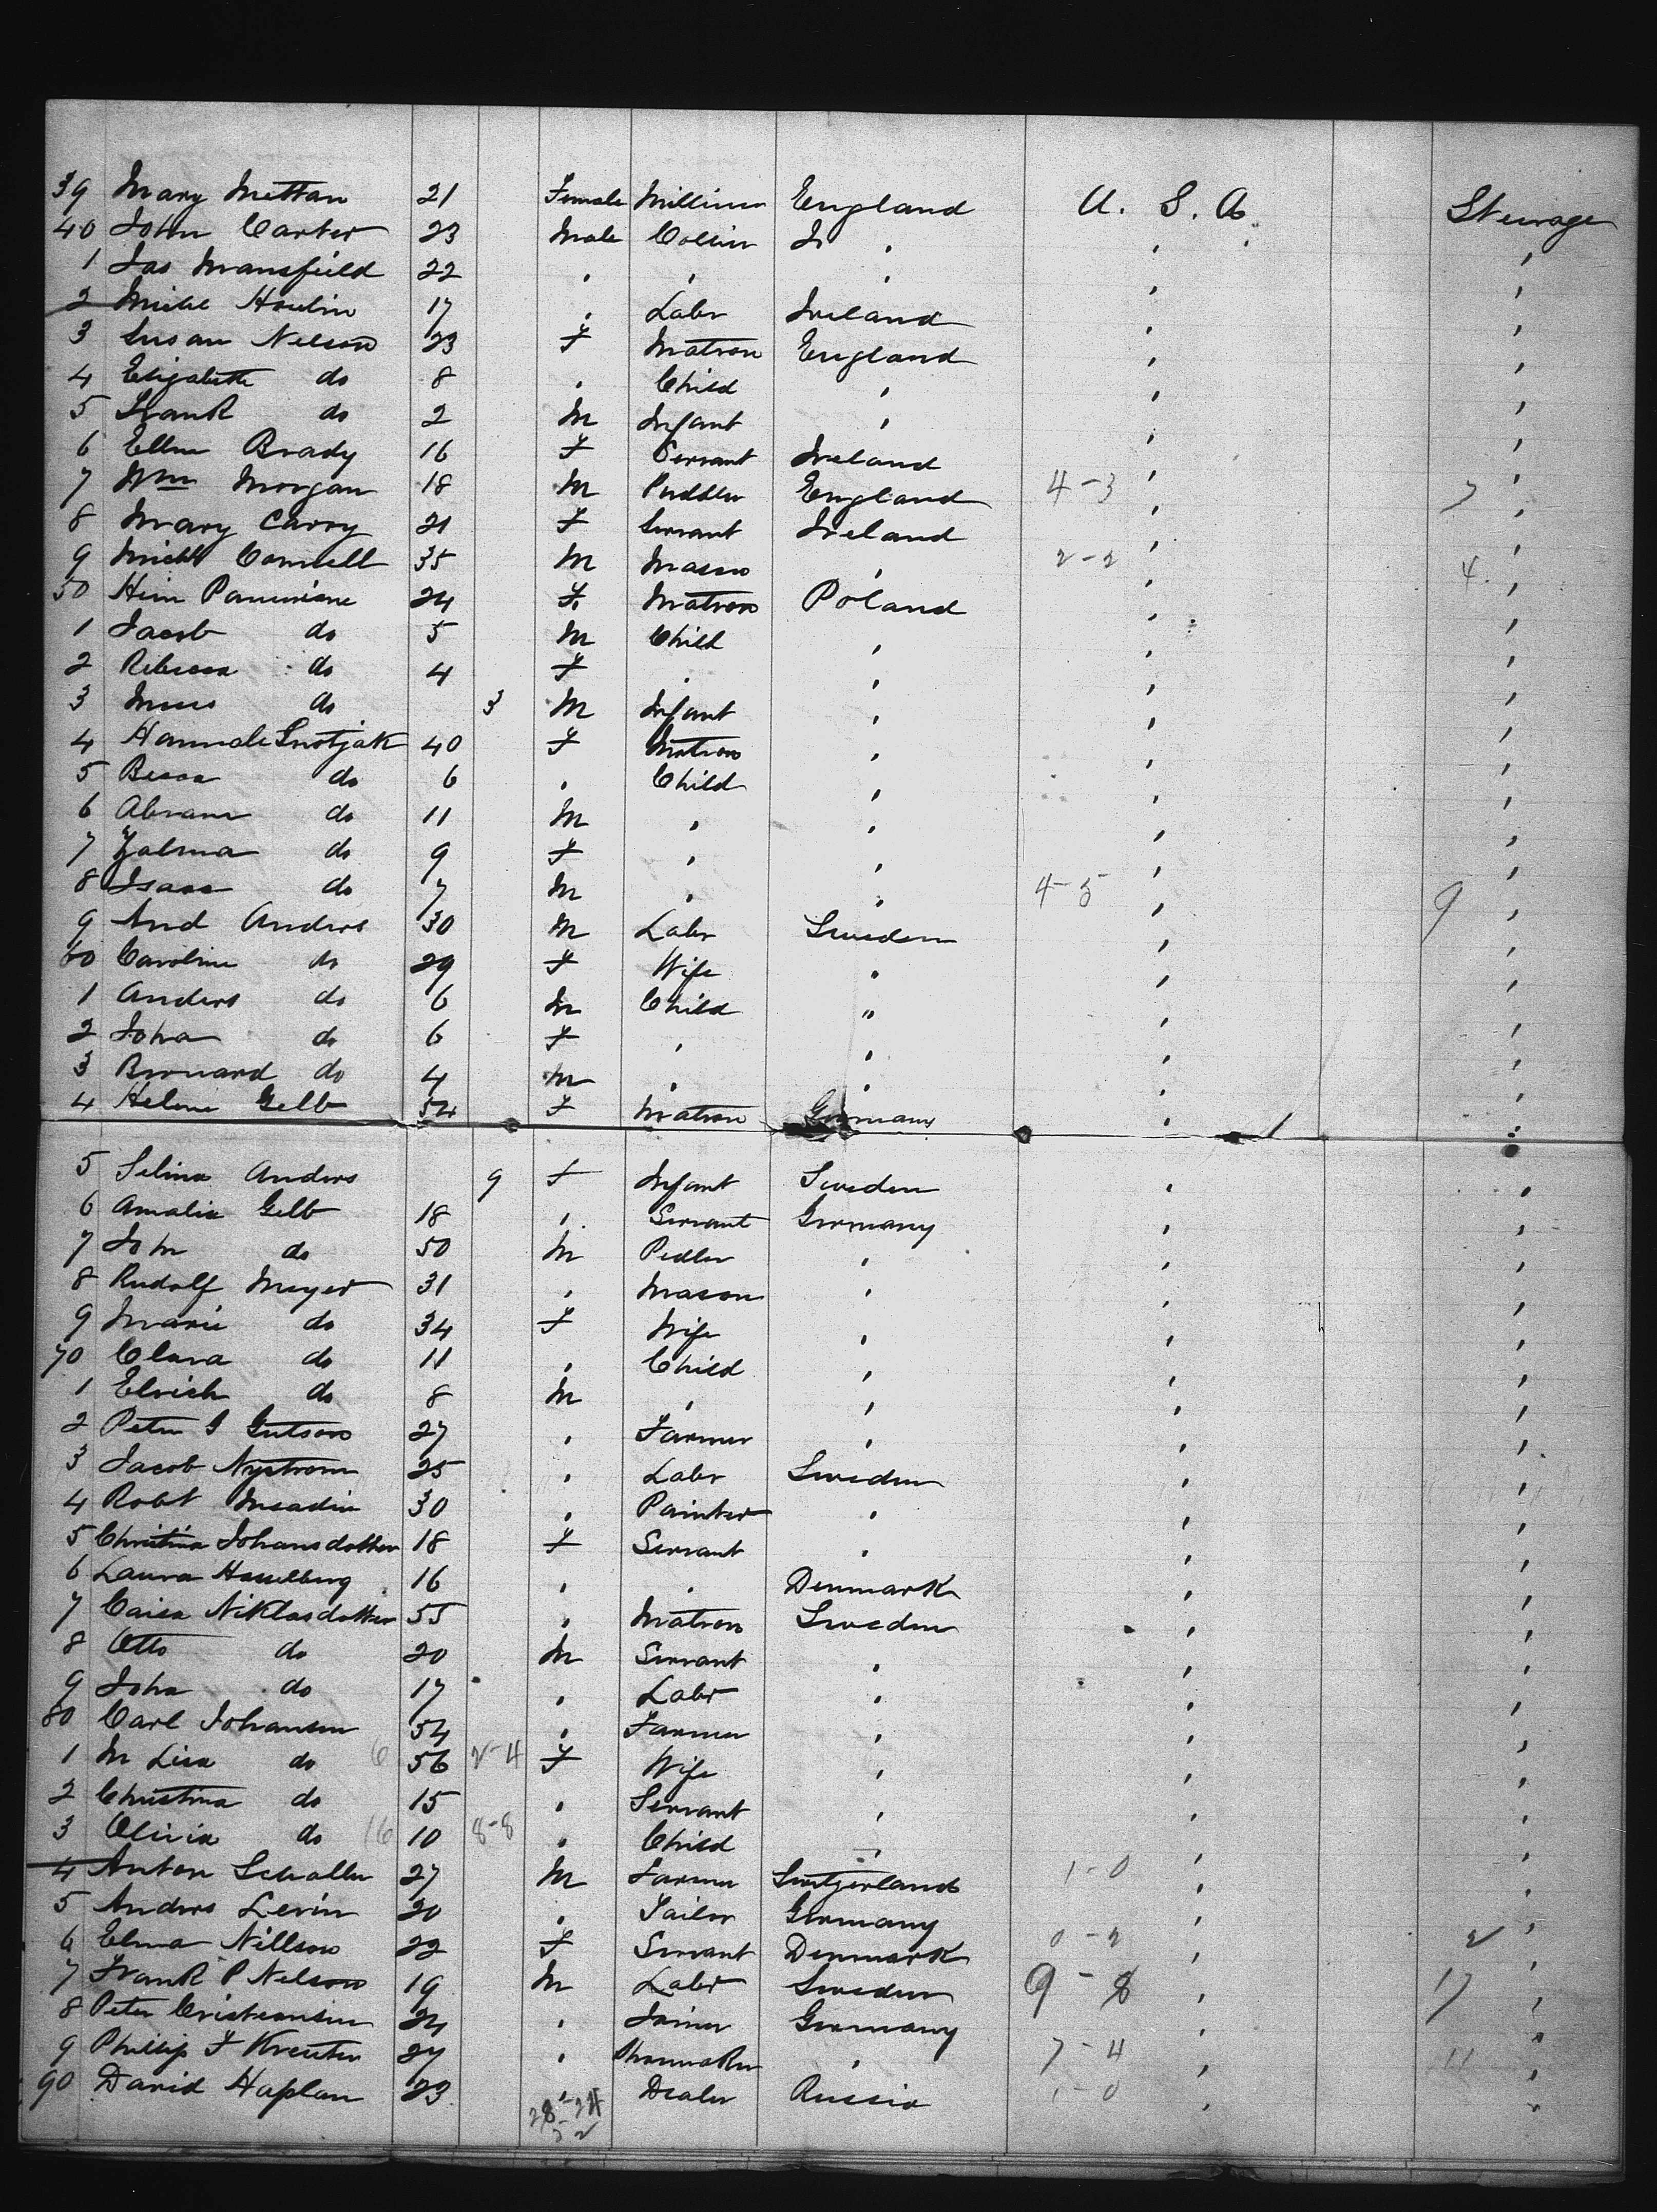 39 Mary Mettan 21 Female Milliner England U. S. A. Steerage
40 John Carter 23 Male Collier Do ,
1 Jas Mansfield 22 , , , , ,
2 Michl 17 , Labr Ireland , ,
3 Susan Nelson 23 F Matron England , ,
4 Elizabeth do 8 , Child , , ,
5 Frank do 2 M Infant , , ,
6 Ellen Brady 16 F Servant Ireland , ,
7 Wm Morgan 18 M Puddler England 4-3 , 7 ,
8 Mary Carry 21 F Servant Ireland , ,
9 Michl Connell 35 M Mason , 2-2 , 4 ,
50 24 F. Matron Poland , ,
1 Jacob do 5 M Child , , ,
2 Rebecca do 4 F , , , ,
3 do 3 M Infant , , ,
4 40 F Matron , , ,
5 do 6 , Child , , ,
6 Abram do 11 M , , , ,
7 Zalma do 9 F , , , ,
8 Isaac do 7 M , , 4-5 , 9 ,
9 And Anders 30 M Labr Sweden , ,
60 Caroline do 29 F Wife " , ,
1 Anders do 6 M Child " , ,
2 Joha do 6 F , , , ,
3 Bernard do 4 M , , , ,
4 Helene Gelb 54 F Matron Germany , ,
5 Selina Anders 9 F Infant Sweden , ,
6 Amalia Gelb 18 , Servant Germany , ,
7 Joh do 50 M Pedler , , ,
8 Rudolf Meyer 31 , Mason , , ,
9 Marie do 34 F Wife , , ,
70 Clara do 11 , Child , , ,
1 Elrich do 8 M , , , ,
2 Peter G 27 , Farmer , , ,
3 Jacob Nystrom 25 , Labr Sweden , ,
4 Robt 30 , Painter , , ,
5 Christina Johansdotter 18 F Servant , , ,
6 Laura Hasselberg 16 , , Denmark , ,
7 Caisa Niklasdotter 55 , Matron Sweden , ,
8 Otto do 20 M Servant , , ,
9 Joha do 17 , Labr , , ,
80 Carl Johansen 54 , Farmer , , ,
1 M Lisa do 6 56 2-4 F Wife , , ,
2 Christina do 15 , Servant , , ,
3 Olivia do 16 10 8-8 , Child , , ,
4 Anton Schaller 27 M Farmer Switzerland 1-0 , ,
5 Anders Levin 20 , Tailor Germany , ,
6 Elma Nillson 22 F Servant Denmark 0-2 , 2 ,
7 Frank P Nelson 19 M Labr Sweden 9-8 , 17 ,
8 Peter Cristeansen 24 , Joiner Germany , ,
9 Phillip F Kreuter 27 , Shoemaker , 7-4 , 11 ,
90 David Haplan 23 , Dealer Russia 1-0 , ,
28-24